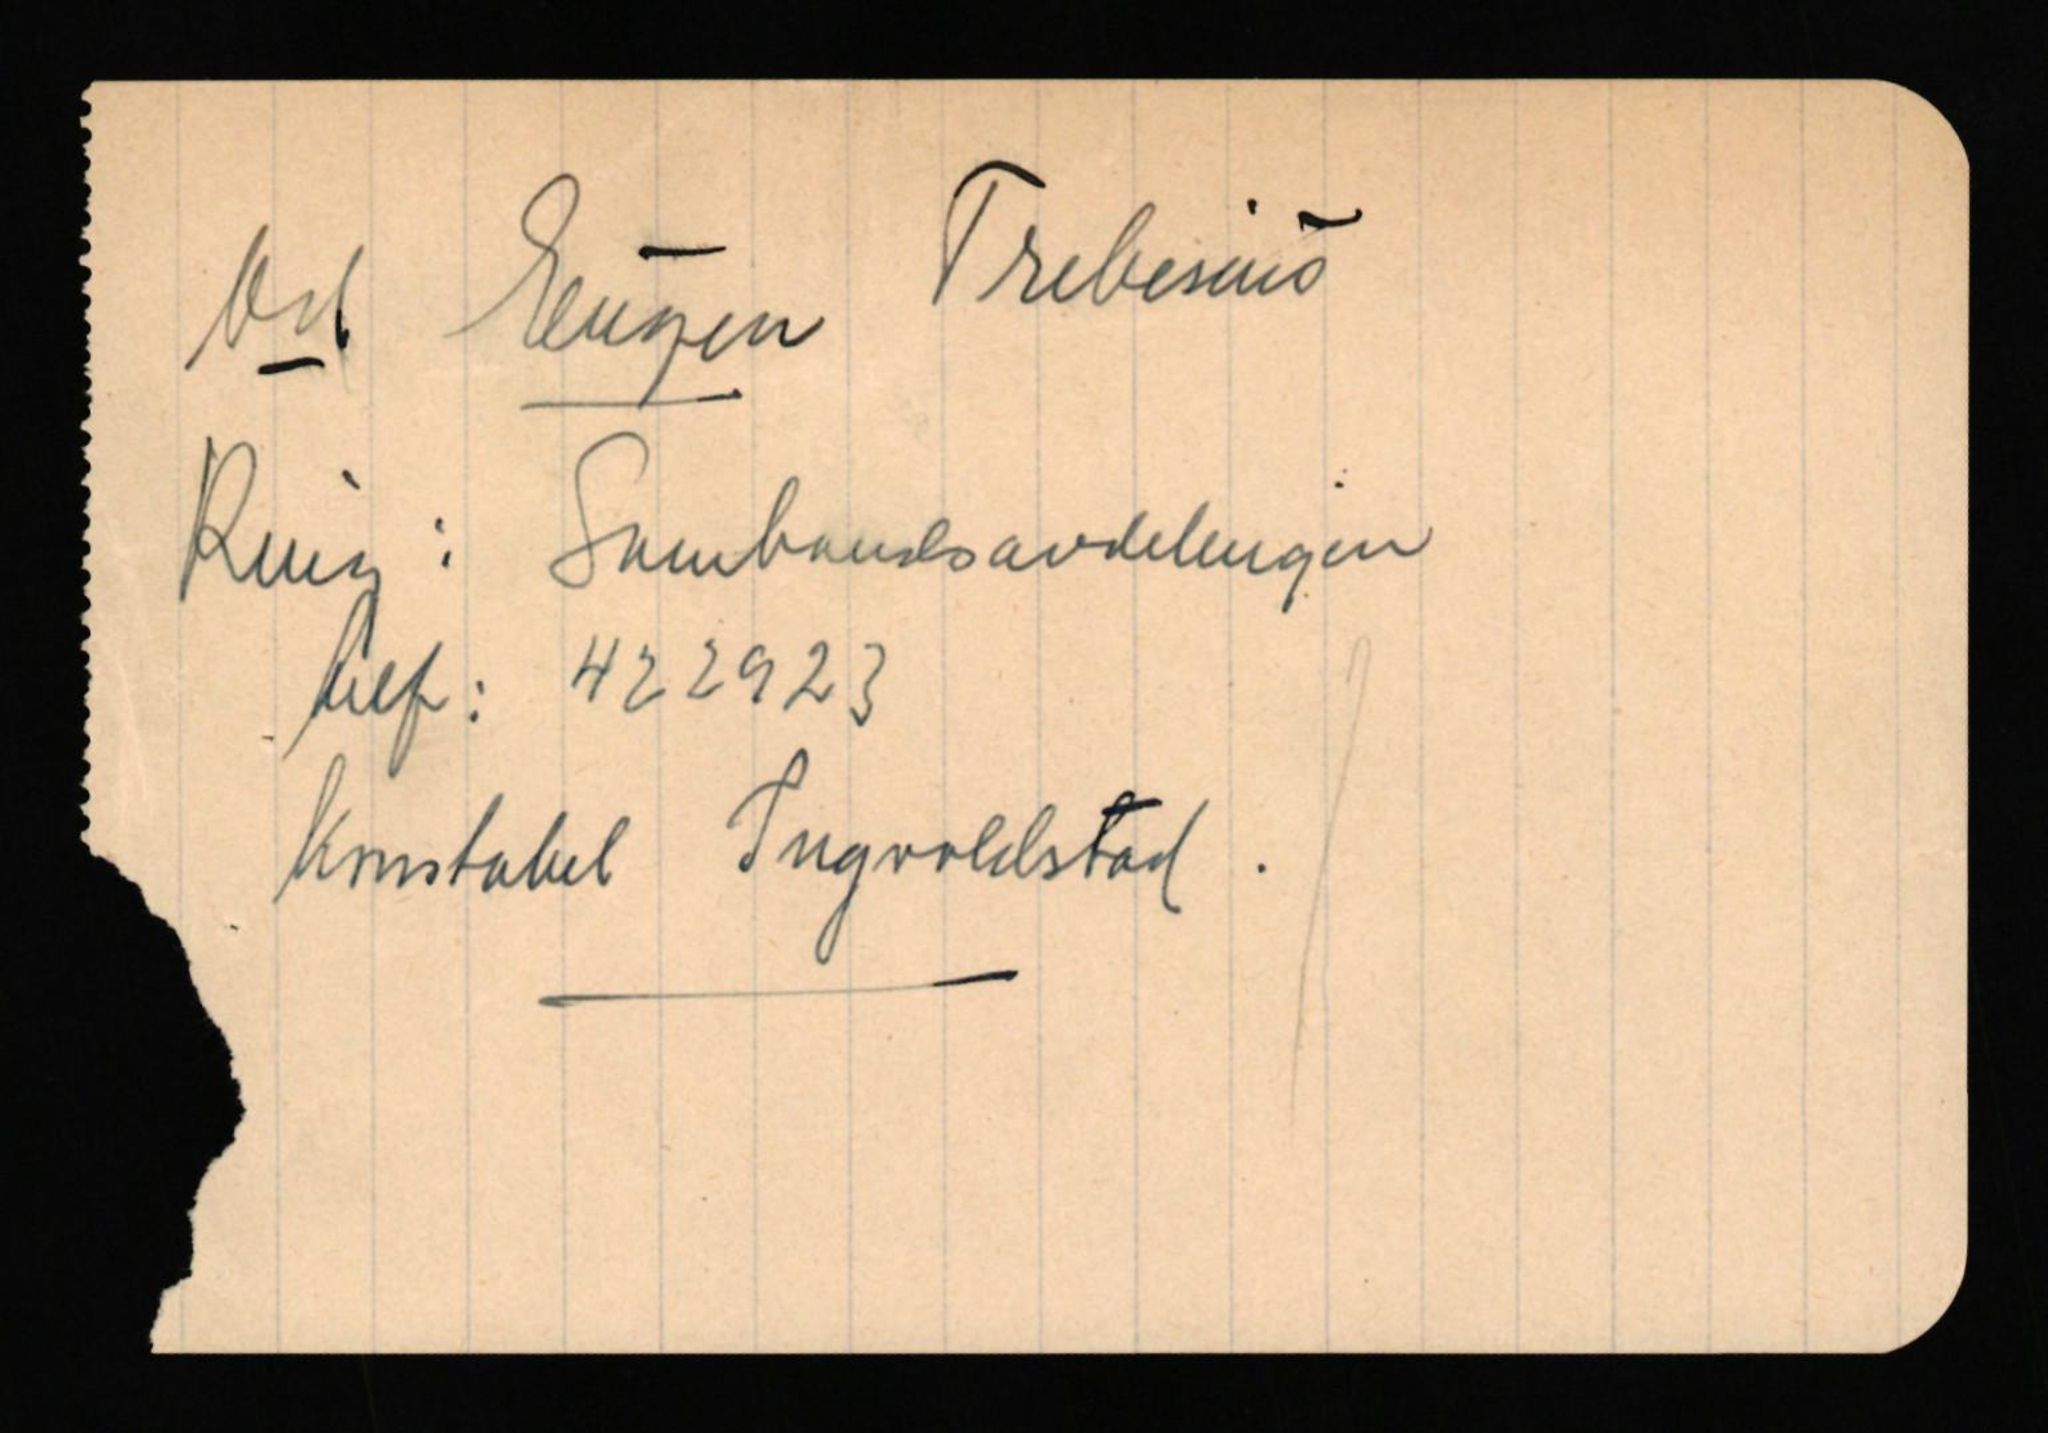 Vd Eugen Trebesius
Ring: Sambandsavdelingen
tilf: 422923
Konstabel Ingvoldstad.